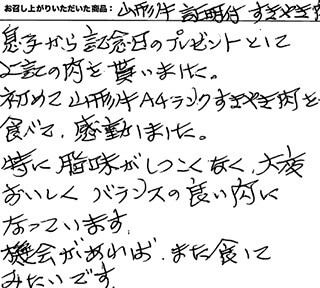 お召し上がりいただいた商品： 山形牛 証明付 すきやき
息子から記念日のプレゼントとして
上記の肉を貰いました。
初めて山形牛A4ランクすきやき肉を
食べて、感動しました。
特に脂味がしつこくなく、大変
おいしく バランスの良い肉に
なっています。
機会があれば、また食して
みたいです。